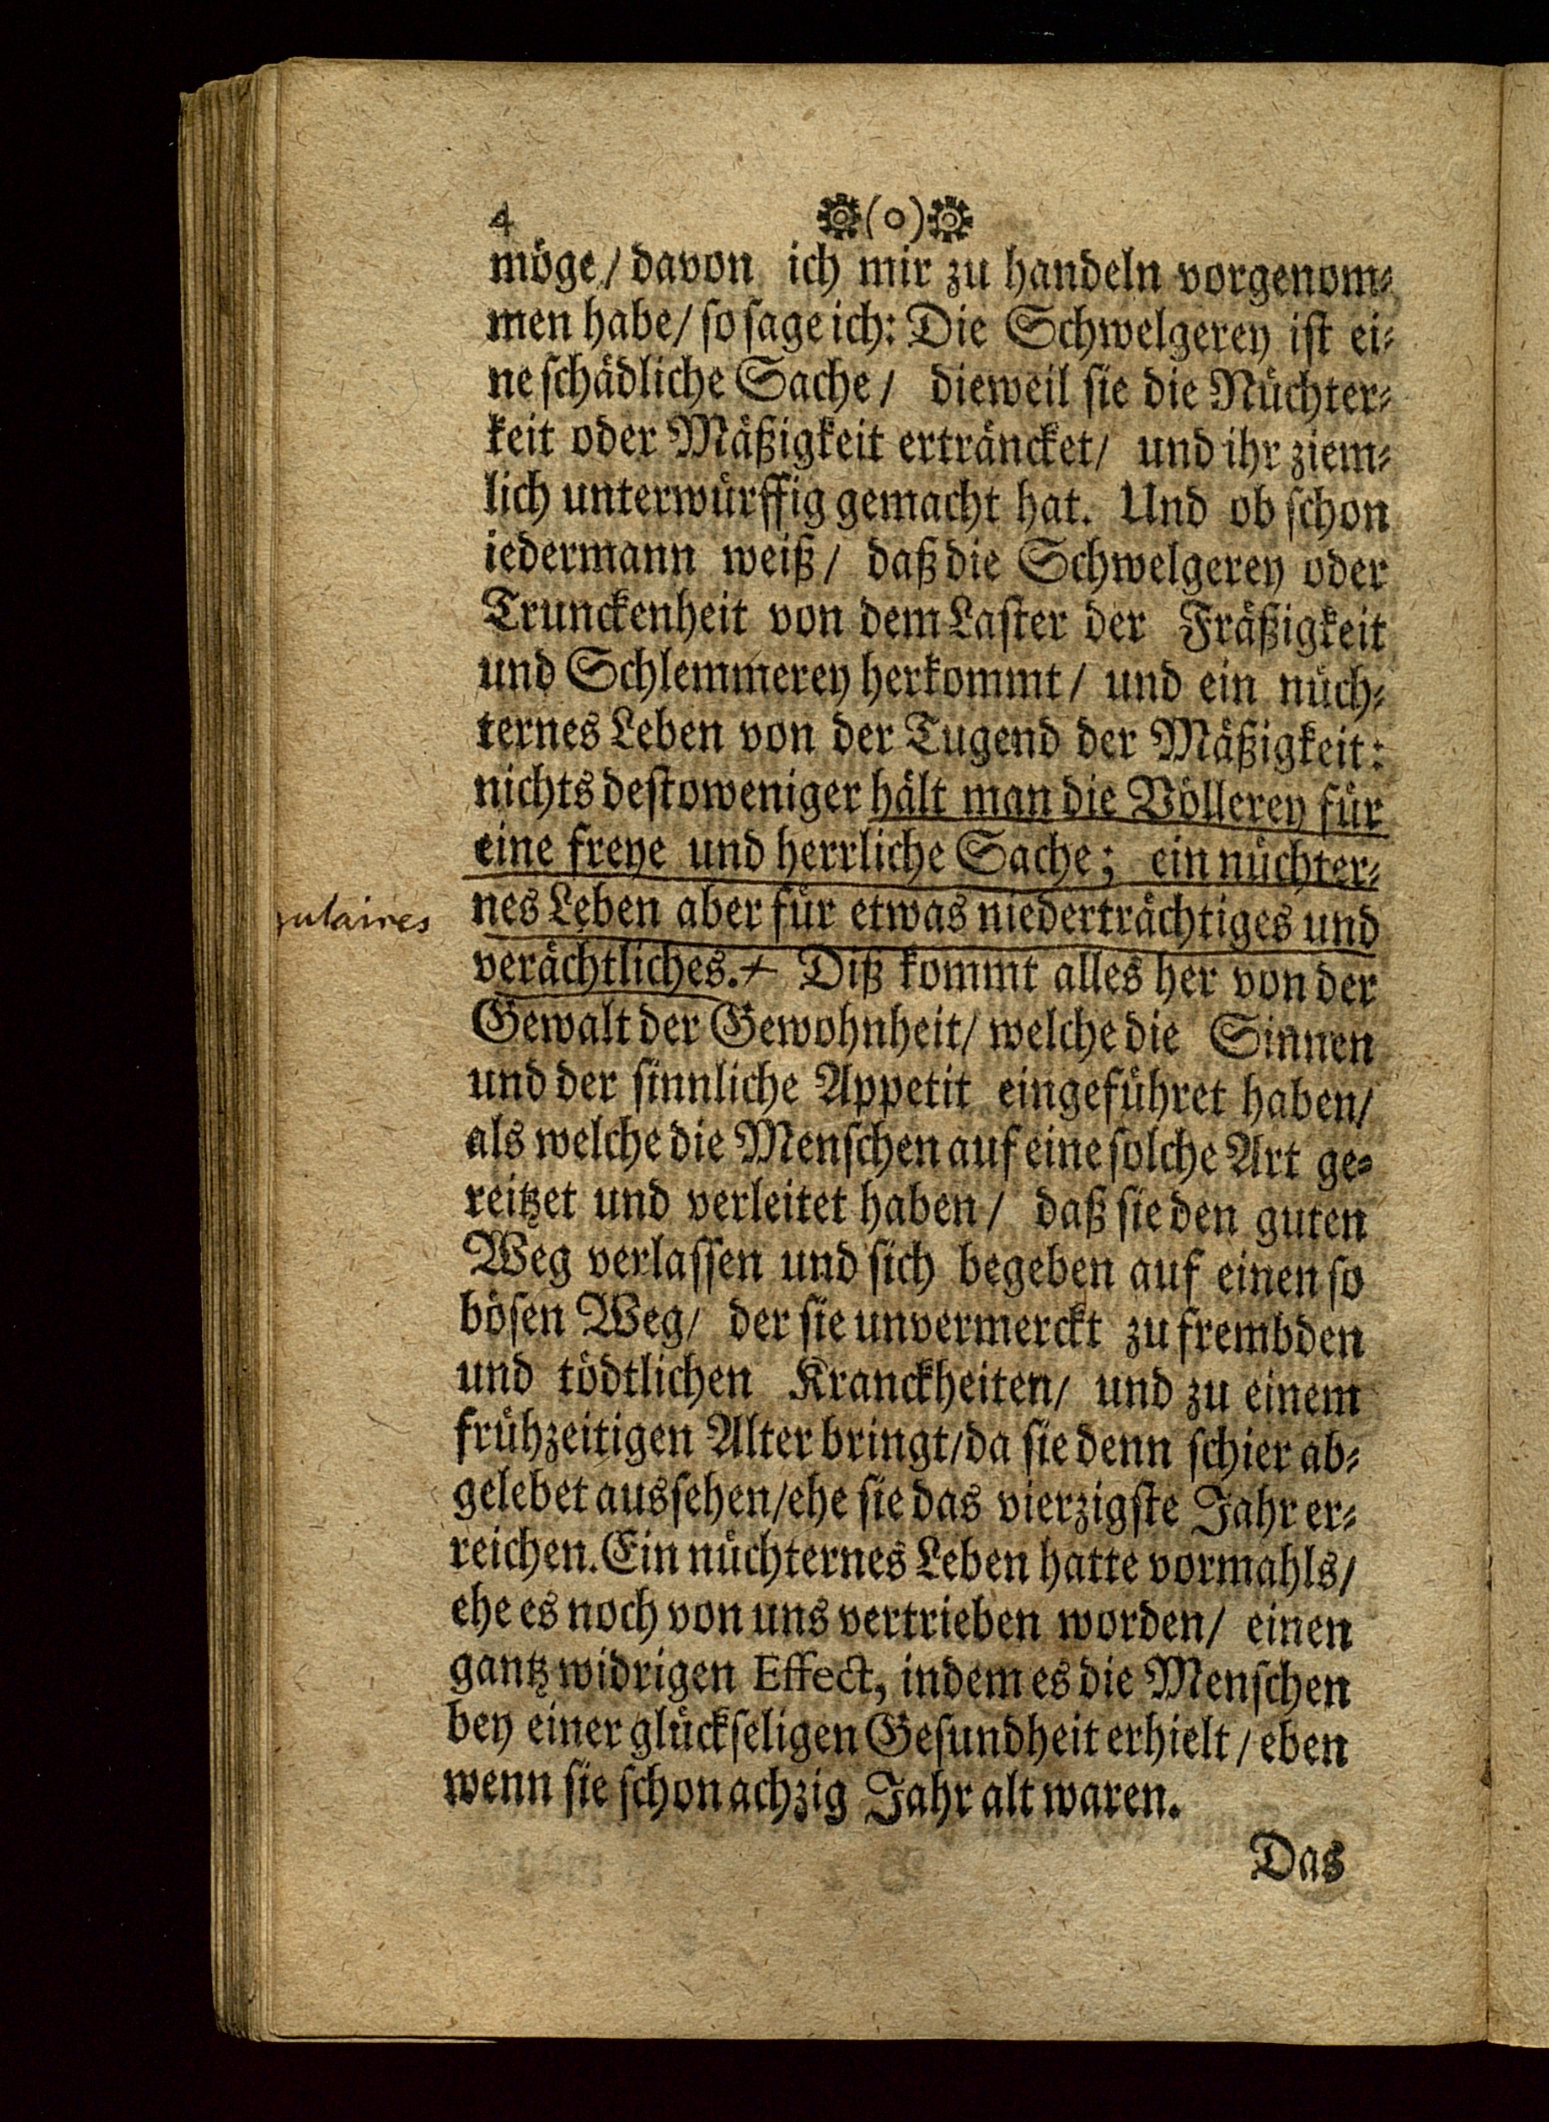 4 (o)
möge/ davon ich mir zu handeln vorgenom⸗
men habe/ so sage ich: Die Schwelgerey ist ei⸗
ne schädliche Sache/ dieweil sie die Nüchter⸗
keit oder Mäßigkeit erträncket/ und ihr ziem⸗
lich unterwürffig gemacht hat. Und ob schon
iedermann weiß/ daß die Schwelgerey oder
Trunckenheit von dem Laster der Fräßigkeit
und Schlemmerey herkommt/ und ein nüch⸗
ternes Leben von der Tugend der Mäßigkeit:
nichts destoweniger hält man die Völlerey für
eine freye und herrliche Sache; ein nüchter⸗
nes Leben aber für etwas niederträchtiges und
verächtliches.+ Diß kommt alles her von der
Gewalt der Gewohnheit/ welche die Sinnen
und der sinnliche Appetit eingeführet haben/
als welche die Menschen auf eine solche Art ge⸗
reitzet und verleitet haben/ daß sie den guten
Weg verlassen und sich begeben auf einen so
bösen Weg/ der sie unvermerckt zu frembden
und tödtlichen Kranckheiten/ und zu einem
frühzeitigen Alter bringt/da sie denn schier ab⸗
gelebet aussehen/ehe sie das vierzigste Jahr er⸗
reichen. Ein nüchternes Leben hatte vormahls/
ehe es noch von uns vertrieben worden/ einen
gantz widrigen Effect, indem es die Menschen
bey einer glückseligen Gesundheit erhielt/ eben
wenn sie schon achzig Jahr alt waren.
Das